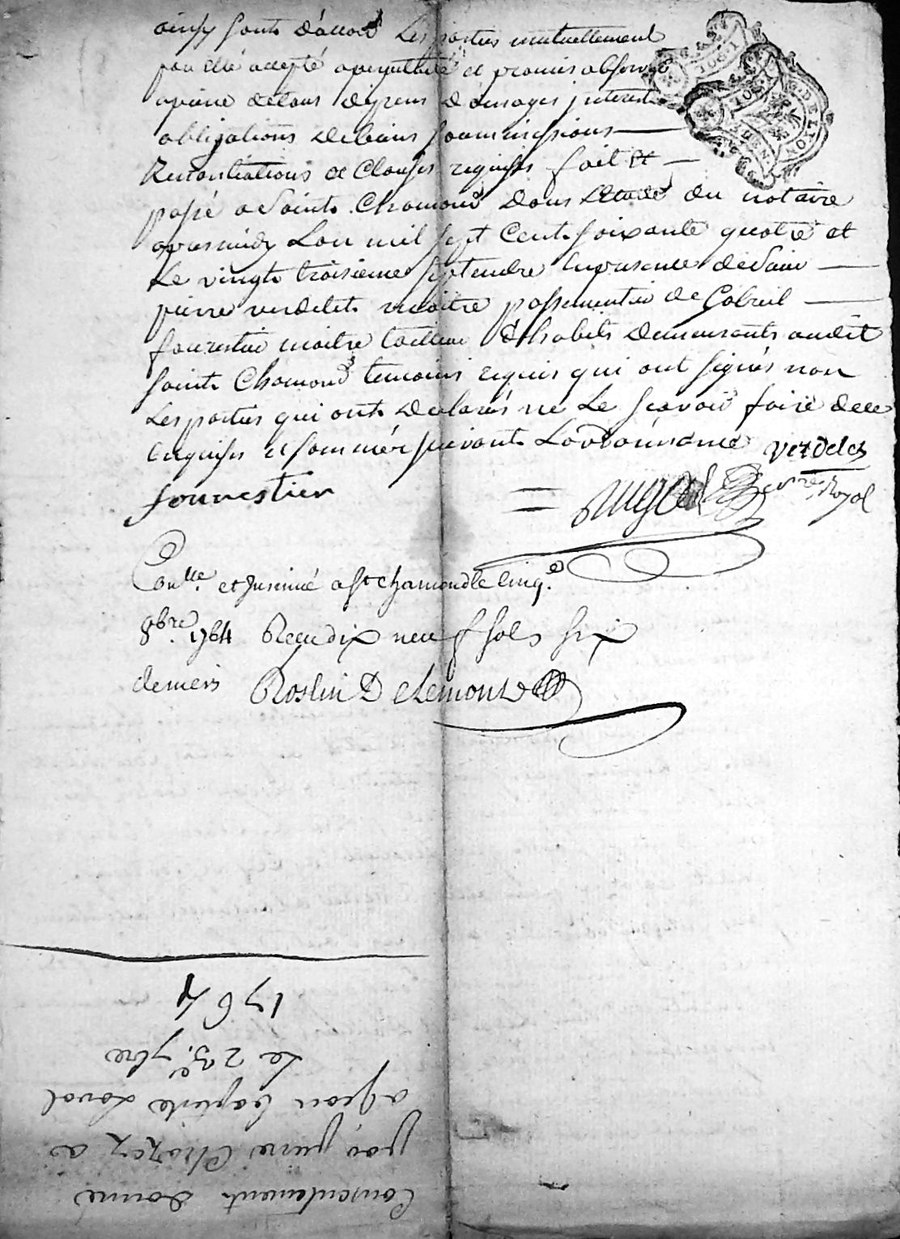 ainsy sont d'accord Les parties mutuellement
accepté et promis observer
a peine de tous depens Domages interest
obligations de biens soumissions
Renontiations et Clauses requises fait et
passé a Saint Chamond dans L'etude du notaire
apres midy L'an mil sept Cent soixante quatre et
Le vingt troisieme septembre en presence de Sieur
pierre verdelet maitre passementier de Gabriel
fourestier maitre tailleur d'habits demeurants audit
Saint Chamond temoins requis qui ont signés non
Les parties qui ont declarés ne Le scavoir faire de ce
enquises et sommés suivant L'ordonnance Verdelet
fourrestier
Royal
Con.lle et Insinué a St chamond le cinq.e
8bre. 1764 Receu dix neuf sols six
deniers Roslin Delemont
DE LION
Consentement donné
par pierre Chazez a
a Jean baptiste Laval
Le 23.e 7bre
1764